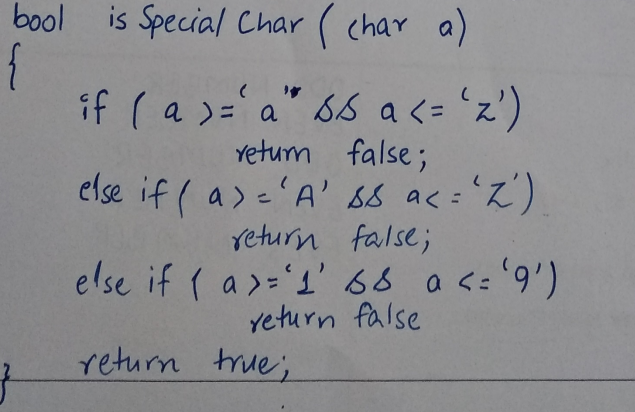 bool is Special Char ( char a)
{
if ( a >= 'a' && a <= 'z')
return false;
else if ( a >= 'A' && a <= 'Z')
return false;
else if ( a >= '1' && a <= '9')
return false
return true;
}